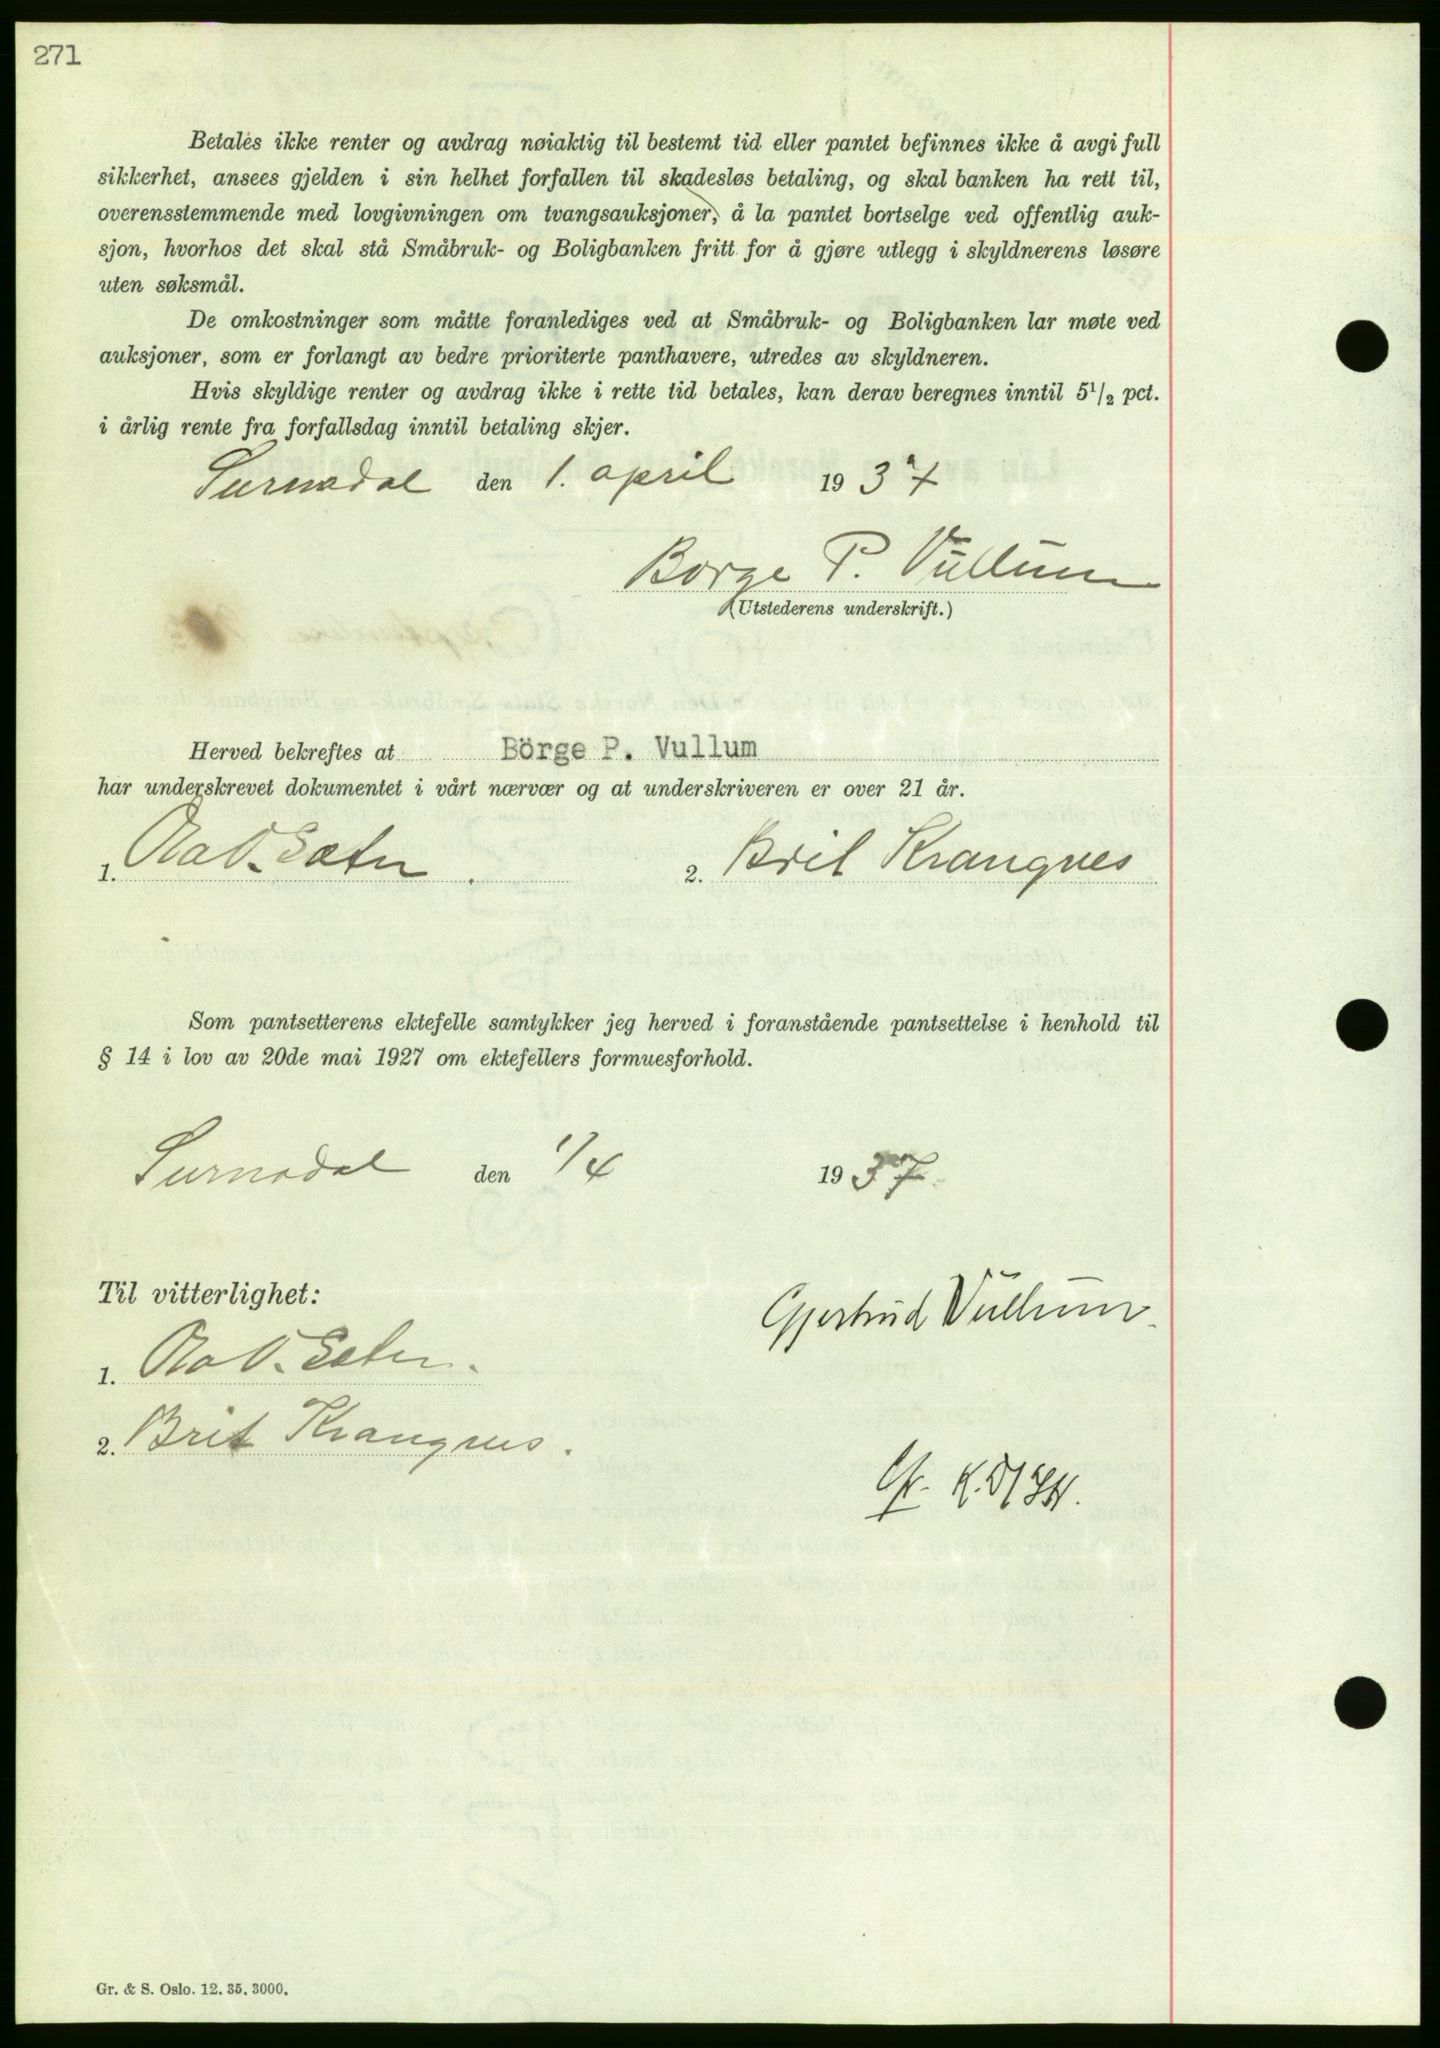 271
Betales ikke renter og avdrag nøiaktig til bestemt tid eller pantet befinnes ikke å avgi full
sikkerhet, ansees gjelden i sin helhet forfallen til skadesløs betaling, og skal banken ha rett til,
overensstemmende med lovgivningen om tvangsauksjoner, å la pantet bortselge ved offentlig auk-
sjon, hvorhos det skal stå Småbruk- og Boligbanken fritt for å gjøre utlegg i skyldnerens løsøre
uten søksmål.
De omkostninger som måtte foranlediges ved at Småbruk- og Boligbanken lar møte ved
auksjoner, som er forlangt av bedre prioriterte panthavere, utredes av skyldneren.
Hvis skyldige renter og avdrag ikke i rette tid betales, kan derav beregnes inntil 5 1/2 pct.
i årlig rente fra forfallsdag inntil betaling skjer.
Surnadal den 1. april 1937
Børge P. Vullum
(Utstederens underskrift.)
Herved bekreftes at Börge P. Vullum
har underskrevet dokumentet i vårt nærvær og at underskriveren er over 21 år.
1. 2. Brit Krangnes
Som pantsetterens ektefelle samtykker jeg herved i foranstående pantsettelse i henhold til
§ 14 i lov av 20de mai 1927 om ektefellers formuesforhold.
Surnadal den 1/4 1937.
Til vitterlighet:
Gjertrud Vullum.
1.
2. Brit Krangnes.
Gr. & S. Oslo. 12. 35. 3000.